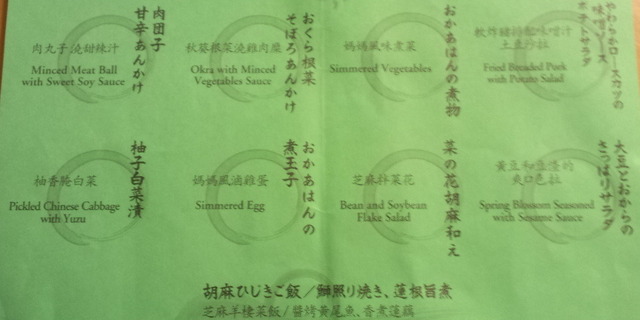 やわらかロースカツの
味噌ソース
ポテトサラダ
軟炸豬排配味噌汁
土豆沙拉
Fried Breaded Pork
with Potato Salad
おかあはんの煮物
媽媽風味煮菜
Simmered Vegetables
おくら根菜
そぼろあんかけ
秋葵根菜澆雞肉糜
Okra with Minced
Vegetables Sauce
肉団子
甘辛あんかけ
肉丸子澆甜辣汁
Minced Meat Ball
with Sweet Soy Sauce
大豆とおからの
さっぱりサラダ
黃豆和豆渣的
爽口色拉
Spring Blossom Seasoned
with Sesame Sauce
菜の花胡麻和え
芝麻拌菜花
Bean and Soybean
Flake Salad
おかあはんの
煮玉子
媽媽風滷雞蛋
Simmered Egg
柚子白菜漬
柚香醃白菜
Pickled Chinese Cabbage
with Yuzu
胡麻ひじきご飯／鰤照り焼き、蓮根旨煮
芝麻羊棲菜飯/醬烤黃尾魚、香煮蓮藕